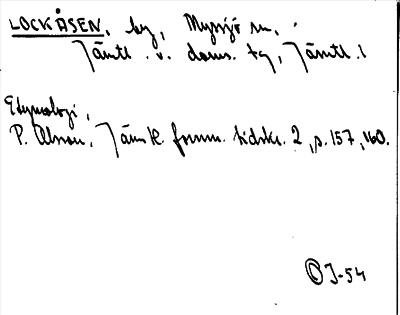 LOCKÅSEN, by, Myssjö sn,
Jämtl. v. doms. tg, Jämtl. l
Etymologi,
P. Olsson, Jämtl. fornm. tidskr. 2, s. 157, 160.
J-54